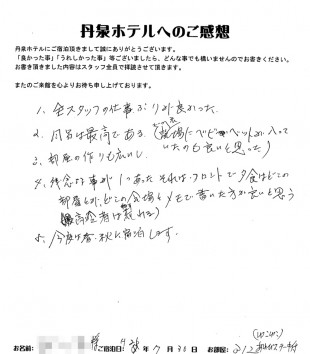 丹泉ホテルへのご感想
丹泉ホテルにご宿泊頂きまして誠にありがとうございます。
「良かった事」「うれしかった事」等ございましたら、どんな事でも構いませんのでお書きください。
お書き頂きました内容はスタッフ全員で拝読させて頂きます。
またのご来館を心よりお待ち申し上げております。
1、全スタッフの仕事ぶりが良かった.
2、風呂は最高である (
場にベビーベットが入って
いたのも良いと思った)
3、部屋の作りも広いし、
4、残念な事が1つあった それは、フロントで夕食はどこの
部屋とか、どこの会場とメモで書いた方が良いと思う
(高齢者は忘れる)
5、今度は春、秋に宿泊します.
お名前:
様
ご宿泊日:
年 7 月 30 日
お部屋:
212